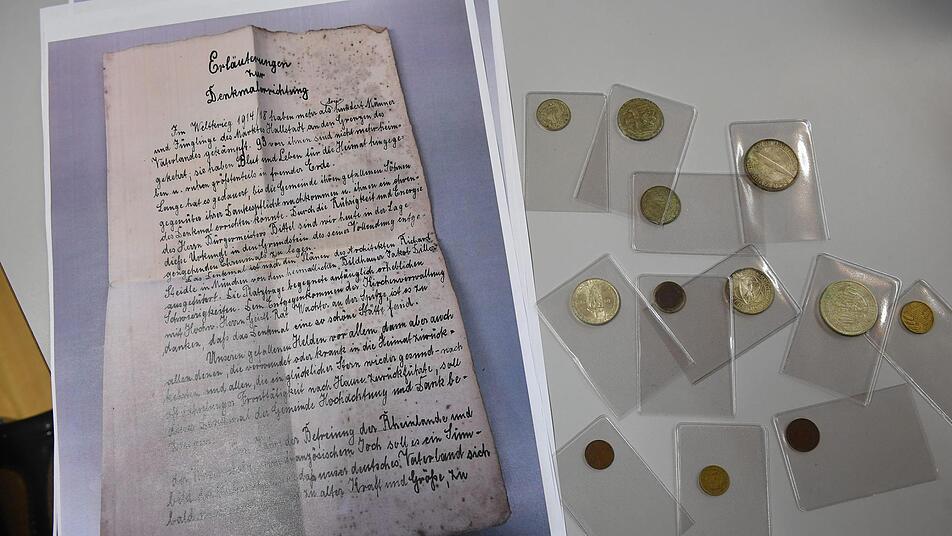 Erläuterungen
zur
Denkmalerrichtung
Im Weltkrieg 1914/18 haben mehr als hundert Männer
und Jünglinge des Marktes Hallstadt an den Grenzen des
Vaterlandes gekämpft. 93 von ihnen sind nicht mehr heim-
gekehrt; sie haben Blut und Leben für die Heimat hingege-
ben u. ruhen größtenteils in fremder Erde.
Lange hat es gedauert, bis die Gemeinde ihren gefallenen Söhnen
gegenüber ihrer Dankespflicht nachkommen u. ihnen ein ehren-
des Denkmal errichten konnte. Durch die Rührigkeit und Energie
des Herrn Bürgermeisters Bittel sind wir heute in der Lage
diese Urkunde in den Grundstein des seiner Vollendung entge-
gengehenden Ehrenmals zu legen.
Das Denkmal ist nach den Plänen des Architekten Richard
Heidle in München von dem heimatlichen Bildhauer Jakob
ausgeführt. Die Platzfrage begegnete anfänglich erheblichen
Schwierigkeiten. Dem Entgegenkommen der Kirchenverwaltung
mit Hochw. Herrn Geistl. Rat Wachter an der Spitze, ist es zu
danken, daß das Denkmal eine so schöne Statt fand.
Unseren gefallenen Helden vor allem, dann aber auch
allen denen, die verwundet oder krank in die Heimat zurück-
kehrten und allen, die ein glücklicher Stern wieder gesund nach
Fronttätigkeit nach Hause zurückführte, soll
dieses Denkmal der Gemeinde Hochachtung und Dank be-
der Befreiung der Rheinlande und
französischem Joch soll es ein Sinn-
bild daß unser deutsches Vaterland sich
bald zu alter Kraft und Größe, zu